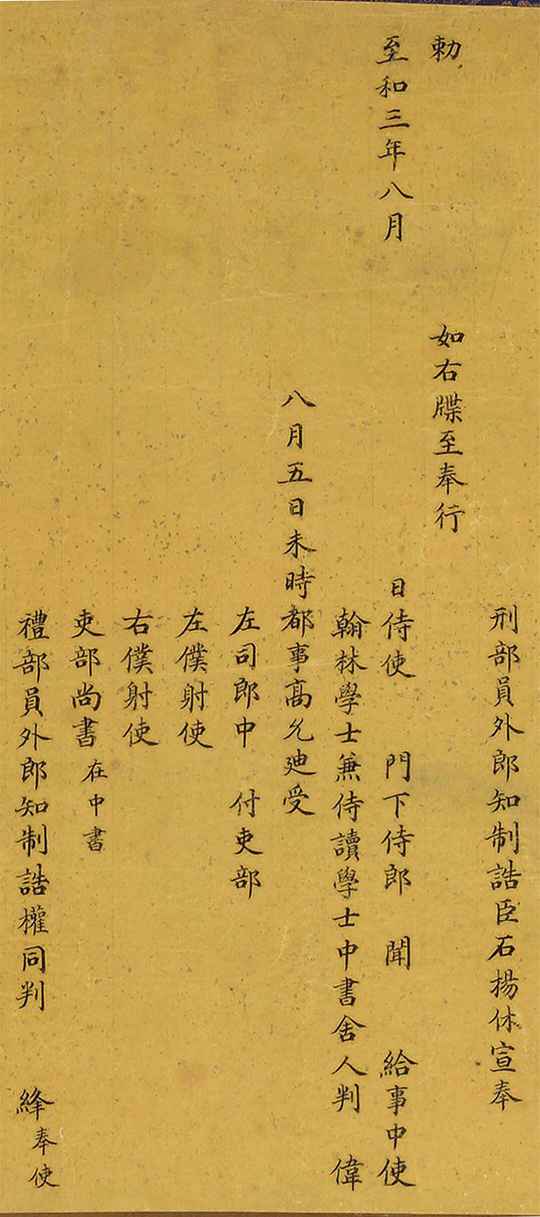 刑部員外郎知制誥臣石揚休宣奉
勅
如右牒至奉行
至和三年八月
日侍使 門下侍郎 聞 給事中使
翰林學士兼侍讀學士中書舍人判 偉
八月五日未時都事高允迪受
左司郎中 付吏部
左僕射使
右僕射使
吏部尚書 在中書
禮部員外郎知制誥權同判 絳奉使